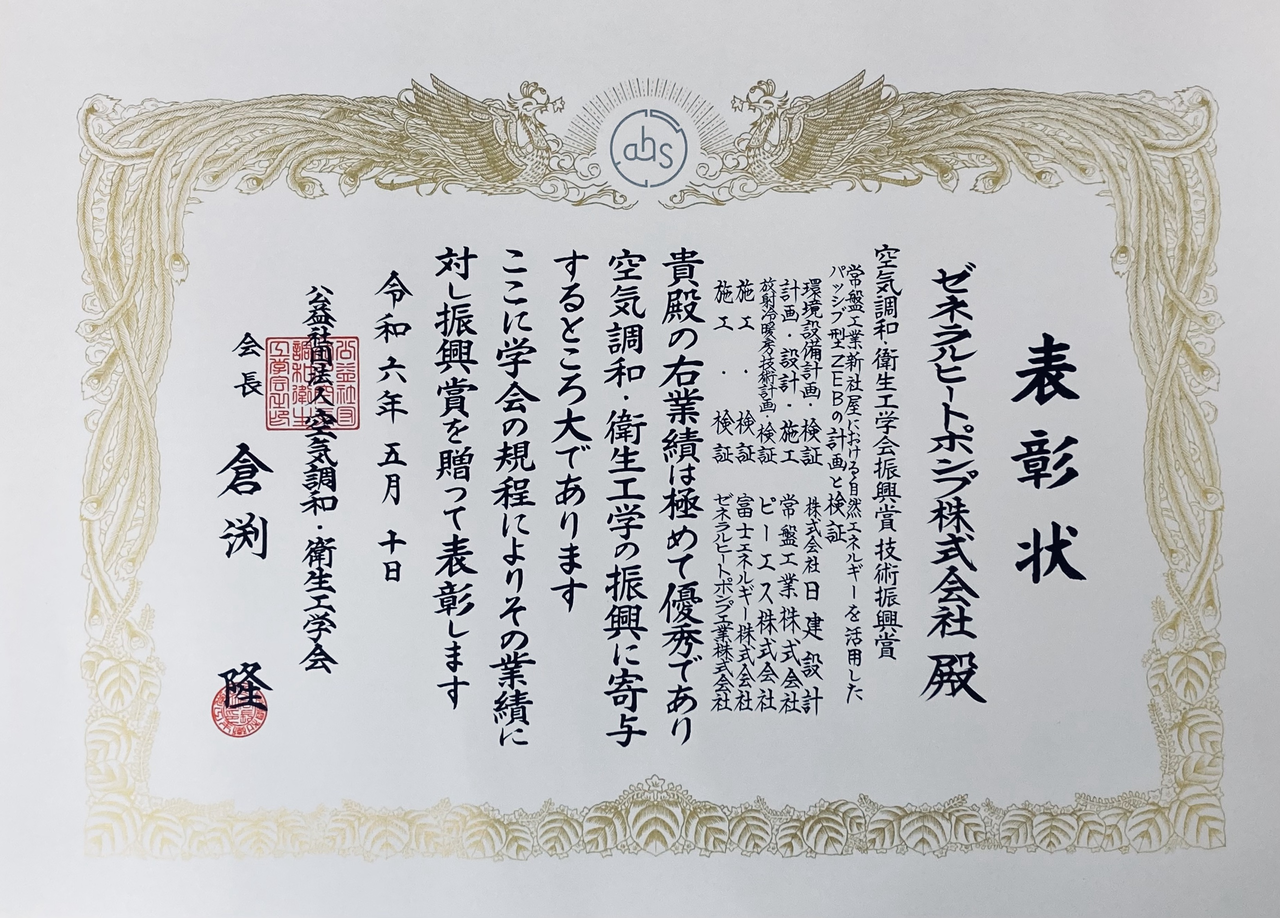 ahs
表彰状
ゼネラルヒートポンプ株式会社 殿
空気調和・衛生工学会振興賞 技術振興賞
常盤工業新社屋における自然エネルギーを活用した
パッシブ型ZEBの計画と検証
環境設備計画・検証 株式会社日建設計
計画・設計・施工 常盤工業株式会社
放射冷暖房技術計画・検証 ピーエス株式会社
施工・検証 富士エネルギー株式会社
施工・検証 ゼネラルヒートポンプ工業株式会社
貴殿の右業績は極めて優秀であり
空気調和・衛生工学の振興に寄与
するところ大であります
ここに学会の規程によりその業績に
対し振興賞を贈って表彰します
令和六年五月十日
公益社団法人空気調和・衛生工学会
会長 倉渕 隆